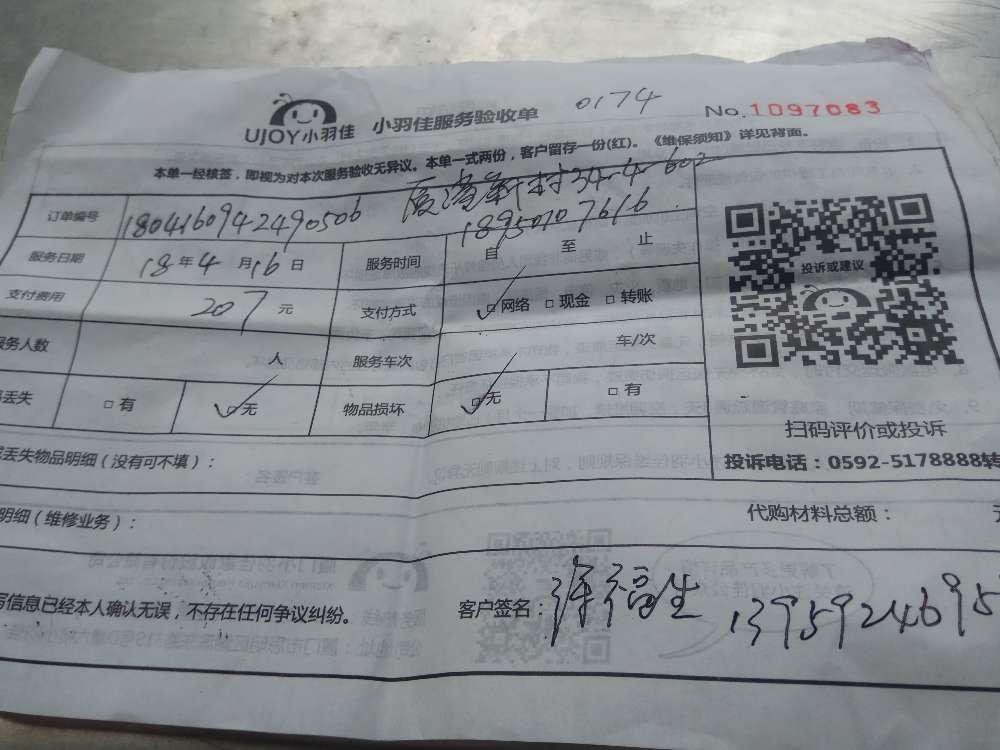 UJOY小羽佳 小羽佳服务验收单 0174 No.1097083
本单一经核签，即视为对本次服务验收无异议。本单一式两份，客户留存一份(红)。《维保须知》详见背面。
新村34-4-602
订单编号 1804160942490506 18950107616
服务日期 18年4月16日 服务时间 自 至 止
支付费用 207元 支付方式 □网络 □现金 □转账
务人数 人 服务车次 车/次
丢失 □有 □无 物品损坏 □无 □有
投诉或建议
扫码评价或投诉
投诉电话：0592-5178888转
丢失物品明细（没有可不填）：
明细（维修业务）： 代购材料总额：
信息已经本人确认无误，不存在任何争议纠纷。 客户签名：徐福生 1395924695